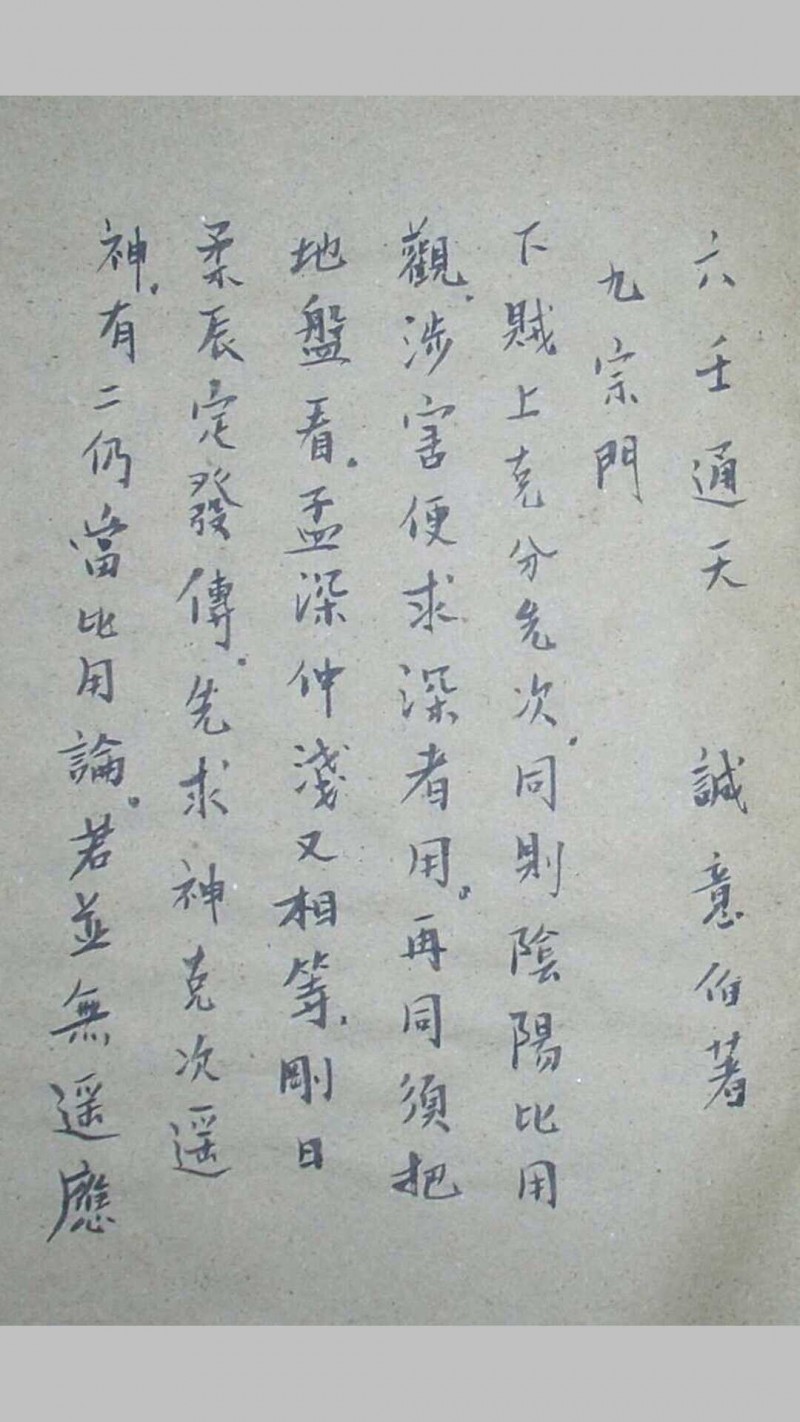 六壬通天　誠意伯著
九宗門
下賊上克分先次，同則陰陽比用
觀，涉害便求深者用。再同須把
地盤看。孟深仲淺又相等，剛日
柔辰定發傳。先求神克次遥
神，有二仍當比用論。若並無遥應